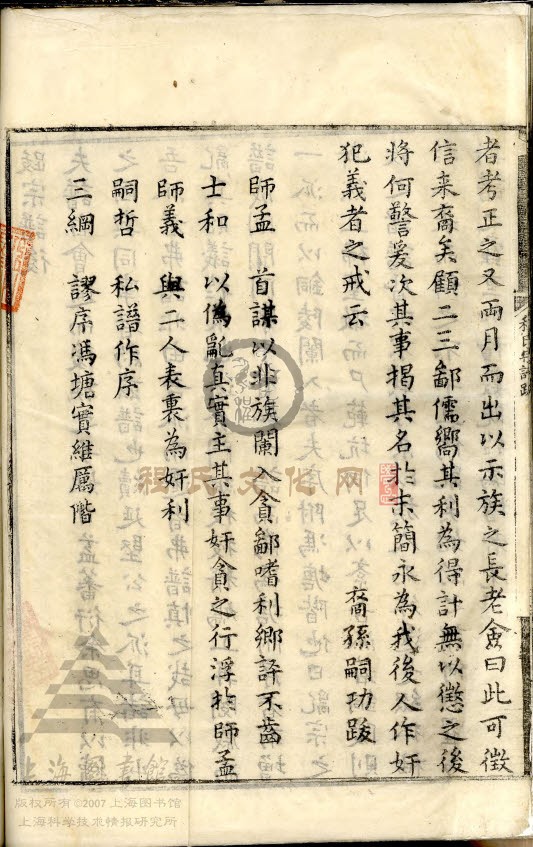 者考正之又兩月而出以示族之長老僉曰此可徵
信來裔矣顧二三鄙儒嚮其利為得計無以懲之後
將何警爰次其事揭其名於末簡永為我後人作奸
犯義者之戒云　裔孫嗣功跋
師孟　首謀以非族闌入貪鄙嗜利鄉評不齒
士和　以偽亂真實主其事奸貪之行浮於師孟
師義　與二人表裏為奸利
嗣哲　私譜作序
三綱　謬序馮塘實維厲階
程氏文化网
上海圖書館
版权所有©2007 上海图书馆
上海科学技术情报研究所